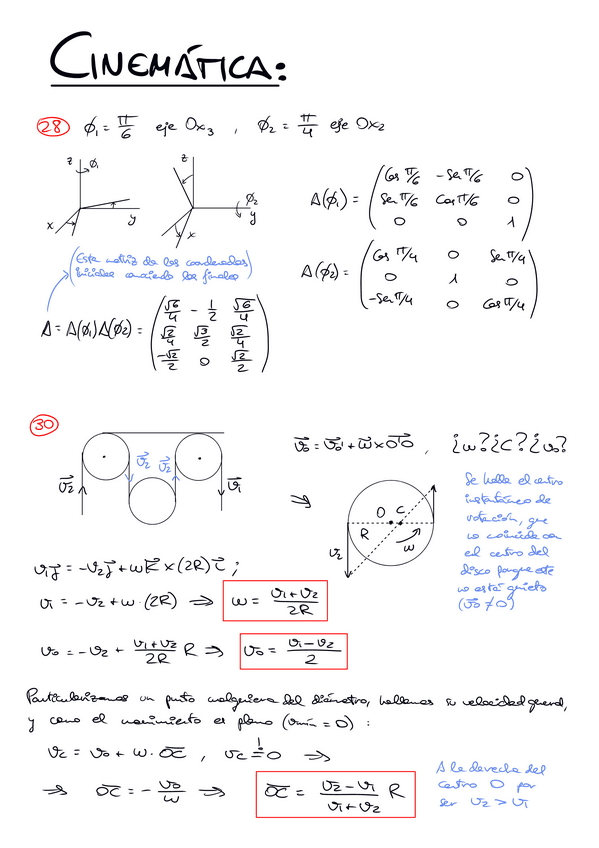 CINEMÁTICA:
28 ϕ₁ = π/6 eje Ox₃ , ϕ₂ = π/4 eje Ox₂
z ϕ₁ y x
z ϕ₂ y x
A(ϕ₁) = ( Cos π/6 -Sen π/6 0
Sen π/6 Cos π/6 0
0 0 1 )
(Esta matriz da las coordenadas
iniciales conociendo las finales)
A(ϕ₂) = ( Cos π/4 0 Sen π/4
0 1 0
-Sen π/4 0 Cos π/4 )
A = A(ϕ₁)A(ϕ₂) = ( √6/4 -1/2 √6/4
√2/4 √3/2 √2/4
-√2/2 0 √2/2 )
30
v⃗₂ v⃗₂ v⃗₂ v⃗₁
v⃗₀ = v⃗₀' + ω⃗ × O'O , ¿ω? ¿C? ¿v₀?
⇒ O C R ω v₂
Se halla el centro
instantáneo de
rotación, que
no coincide con
el centro del
disco porque este
no está quieto
(v⃗₀ ≠ 0)
v₁j⃗ = -v₂j⃗ + ωk⃗ × (2R)i⃗ ;
v₁ = -v₂ + ω·(2R) ⇒ ω = (v₁+v₂)/2R
v₀ = -v₂ + (v₁+v₂)/2R R ⇒ v₀ = (v₁-v₂)/2
Particularizamos un punto cualquiera del diámetro, hallamos su velocidad general,
y como el movimiento es plano (vmín = 0) :
v_C = v₀ + ω · OC , v_C =! 0 ⇒
⇒ OC = - v₀/ω ⇒ OC = (v₂-v₁)/(v₁+v₂) R
A la derecha del
centro O por
ser v₂ > v₁